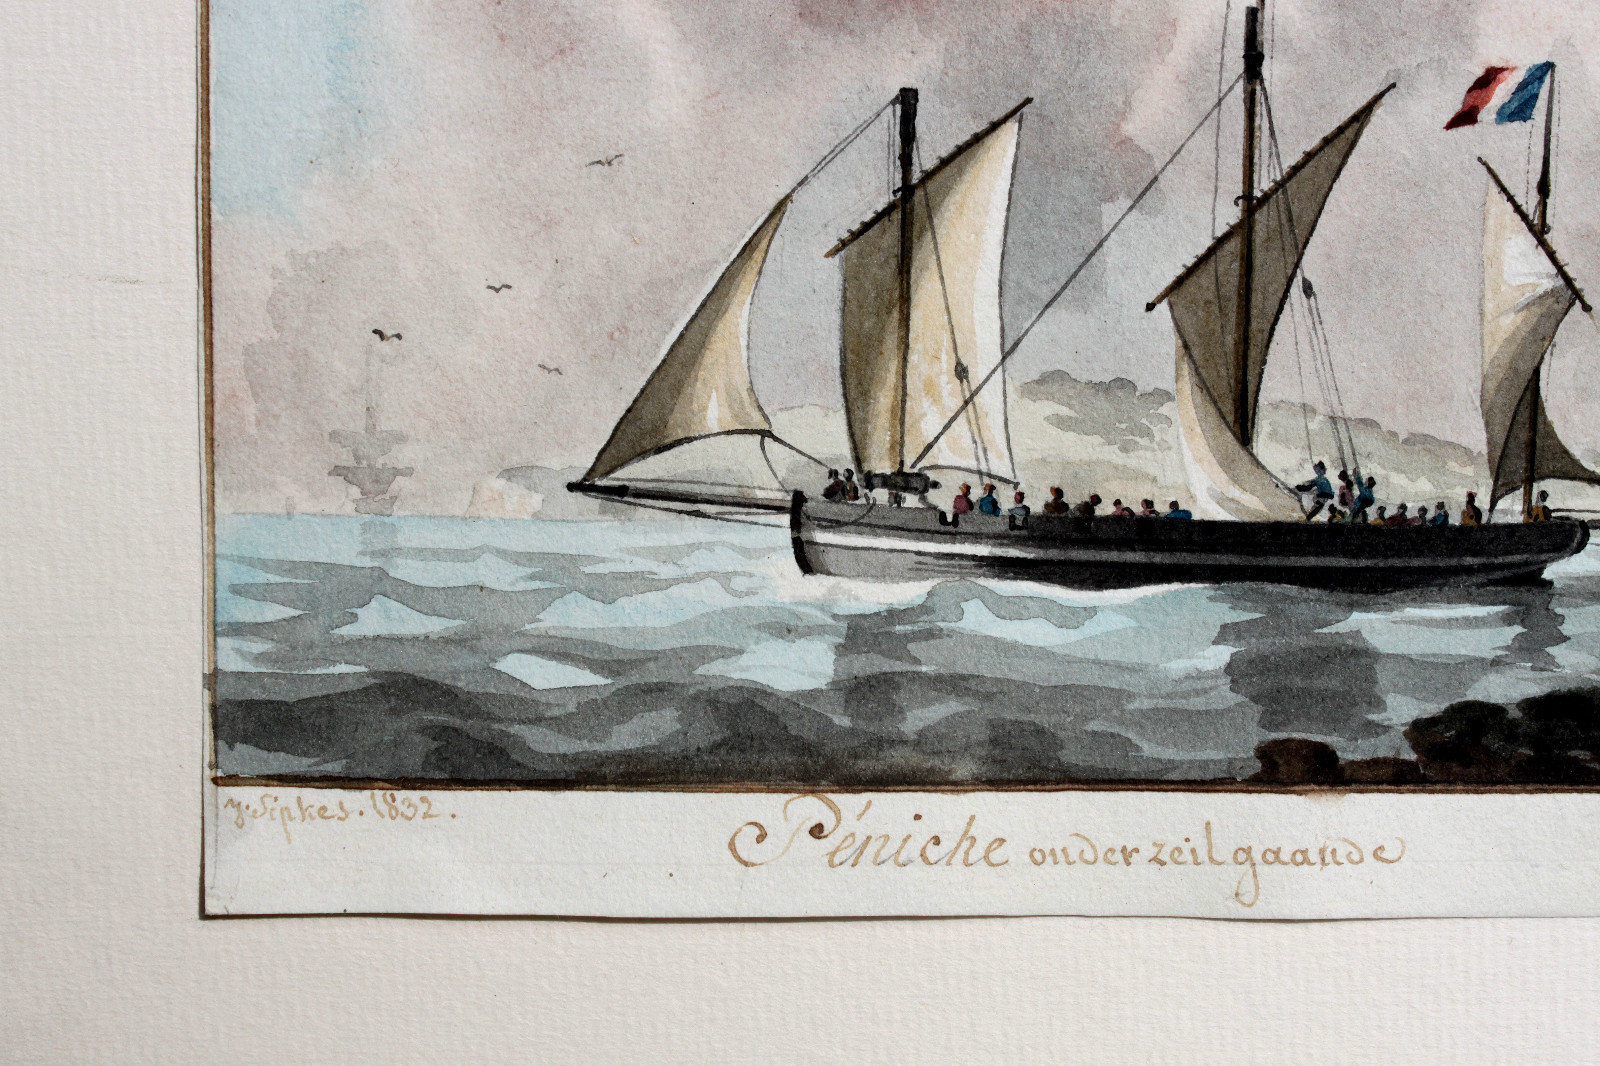 J. Sipkes. 1832.
Péniche onder zeil gaande